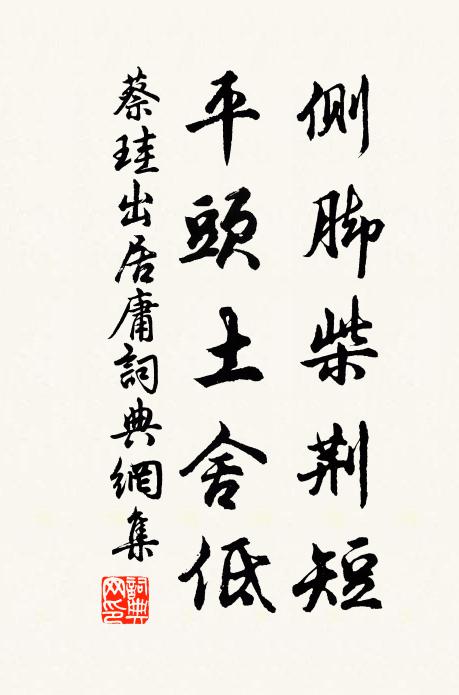 侧脚柴荆短
平頭土舍低
蔡珪出居庸詞典網集
詞典网印